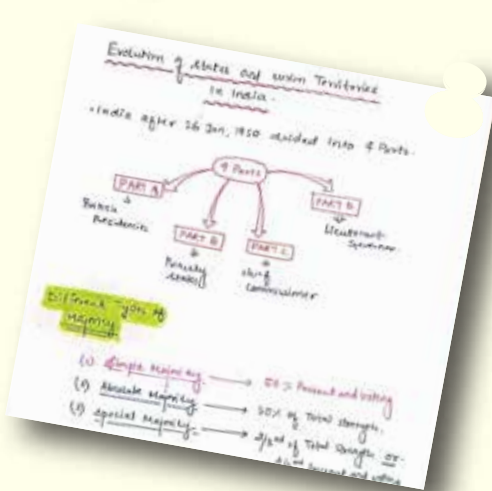 Evolution of states and union Territories
in India.
• India after 26 Jan, 1950 divided into 4 Parts.
4 Parts
PART A
British Presidencies
PART B
Princely states
PART C
chief commissioner
PART D
Lieutenant Governor
Different Types of
Majority
(1) Simple Majority → 50% Present and voting
(2) Absolute Majority → 50% of Total strength,
(3) Special Majority → 2/3rd of Total Strength or
2/3rd Present and voting